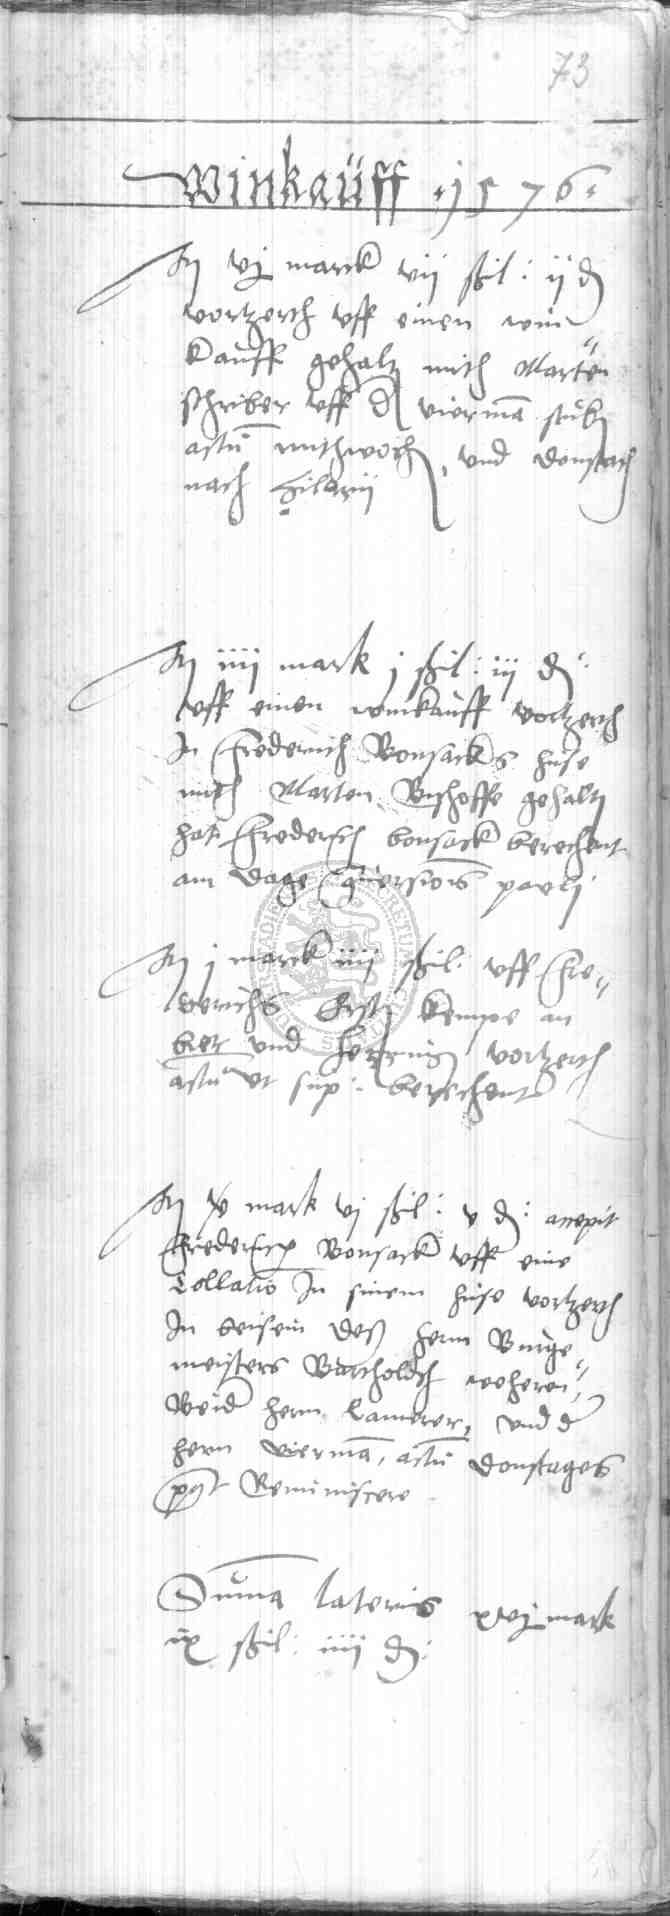 73
Winkauff · 1576 ·
It vj marck vij ßil: ij d
vortzerth uff einen win
kauff gehaltz mith Marten
schriber uff d vierma stub
actu mithwoch, und donstach
nach Hilarii
It iiij mark j ßil: iij d:
uff einen winkauff vortzerth
In Frederich Bonsacks huse
mith Marten Bishoffe gehaltz
hat Frederich bonsack berechent
am dage Conversiois pauli
It j marck iiij ßil: uff Fre=
derichs kempe an
bier und hering vortzerth
actu ut sup: berechent
It v mark vj ßil: v d: accepit
Friederich Bonsack uff eine
Collatio In sinem huse vortzerth
In beisein deß hern Burge=
meisters Bartholdth
Beide hern Camerer, und d
hern vierma, actu donstages
post Reminiscere
Suma lateris xvij mark
ix ßil: iiij d: